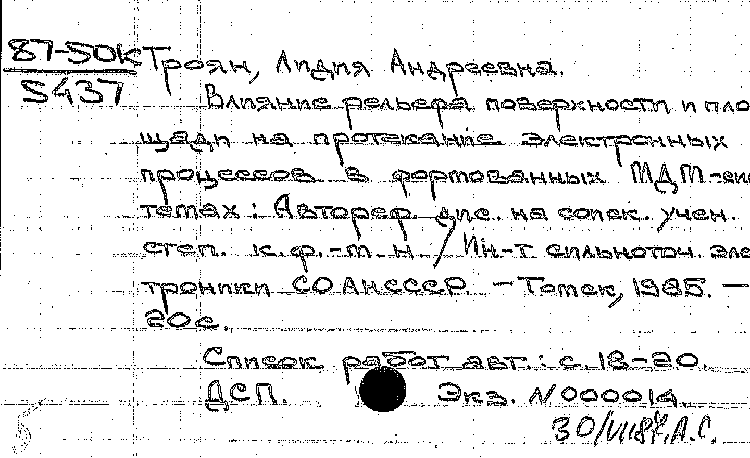 87-50К Троян, Лидия Андреевна.
5437
Влияние рельефа поверхности и пло
щади на протекание электронных
процессов в формованных МДМ-сис
темах: Автореф. дис. на соиск. учен.
степ. к. ф.-м. н / Ин-т сильноточ. элек
троники СО АН СССР. — Томск, 1985. —
20 с.
Список работ авт.: с. 18-20.
ДСП. Экз. N 000014.
30/VII87. А.С.